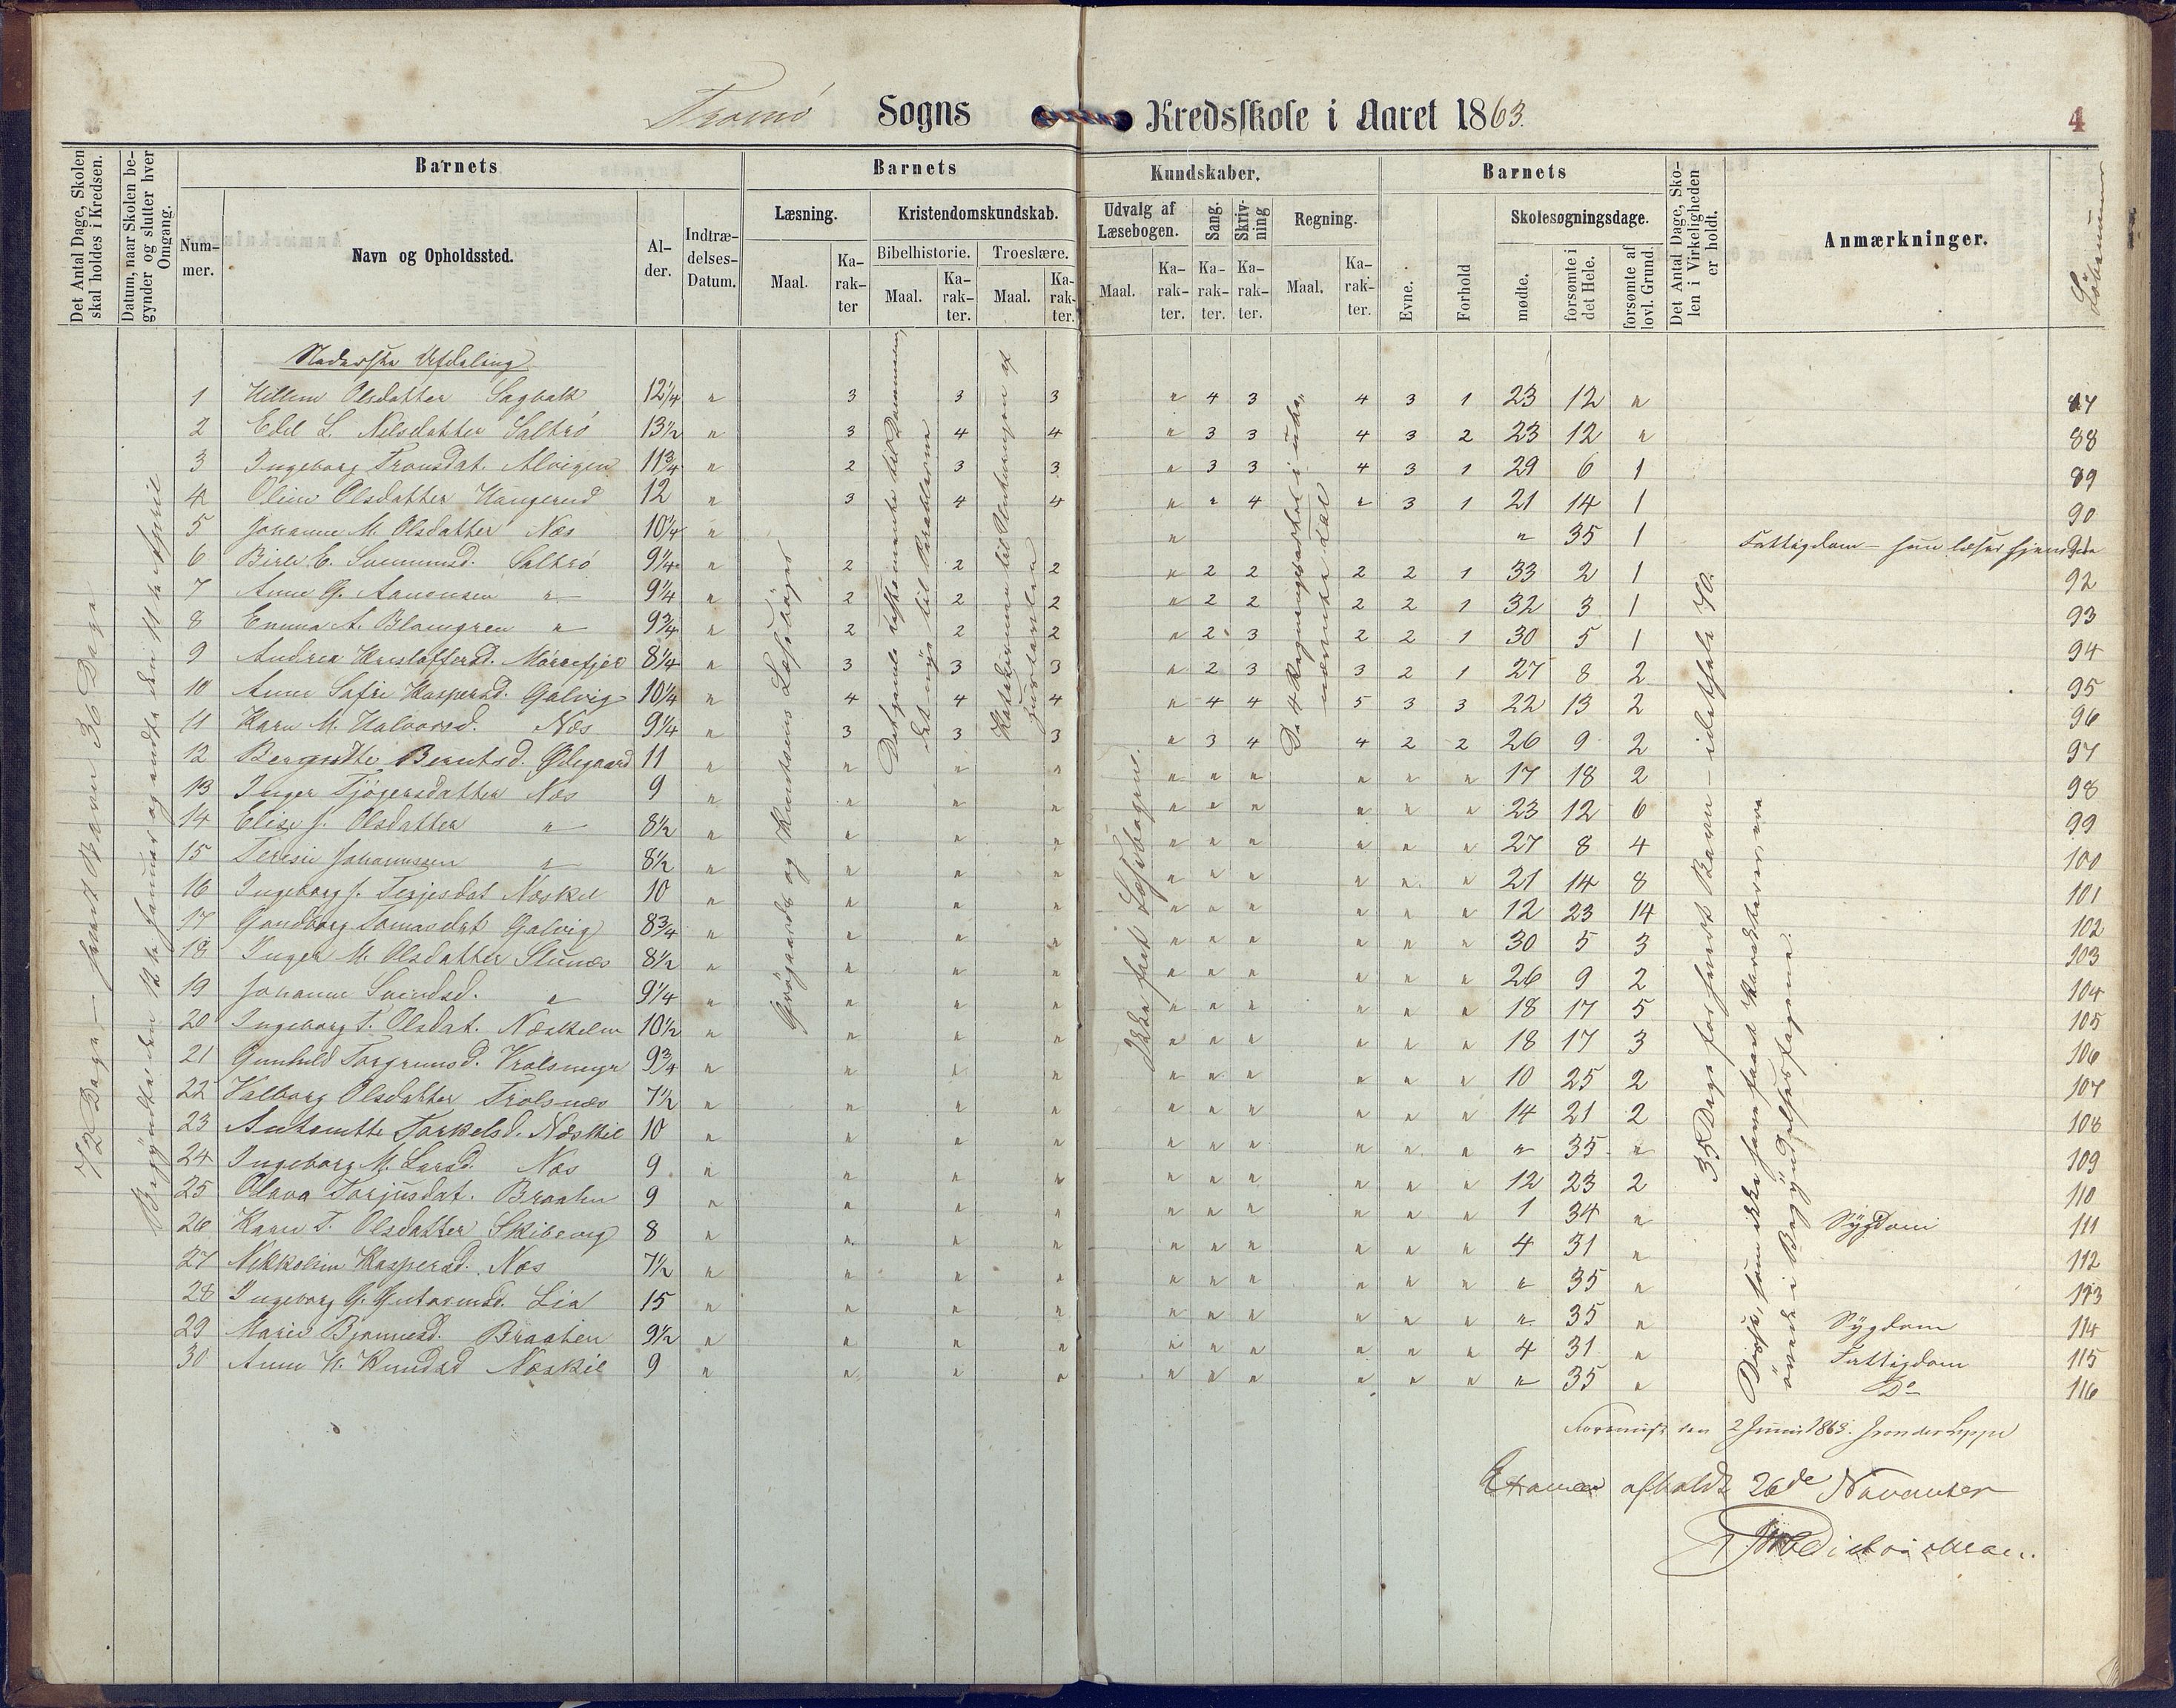 Tromø Sogns Kredsskole i Aaret 1863.
4
Det Antal Dage, Skolen skal holdes i Kredsen.
Datum, naar Skolen begynder og slutter hver Omgang.
Barnets
Nummer.
Navn og Opholdssted.
Alder.
Indtrædelses-Datum.
Barnets Kundskaber.
Læsning.
Maal.
Karakter
Kristendomskundskab.
Bibelhistorie.
Maal.
Karakter.
Troeslære.
Maal.
Karakter.
Udvalg af Læsebogen.
Maal.
Karakter.
Sang.
Karakter.
Skrivning
Karakter.
Regning.
Maal.
Karakter.
Barnets
Evne.
Forhold
Skolesøgningsdage.
mødte.
forsømte i det Hele.
forsømte af lovl. Grund.
Det Antal Dage, Skolen i Virkeligheden er holdt.
Anmærkninger.
Löbenumer
72 Dage — hvert Barn 36 Dage
Begyndte den 12te Januar og endte den 11te April
Grøgaards og Knutsens Læsebøger
Ikke fast Læsebogene.
De 4 Regningsarter i ube„ nævnte Tal
35 Dage for hvert Barn — idethele 70.
Disse, som ikke have faaet Karakterer, ere øvede i Begyndelsesfagene.
Nederste Afdeling
1 Olsdatter 12¼ „ 3 3 3 „ 4 3 4 3 1 23 12 „ 87
2 Edel L. Nilsdatter Saltrö 13½ „ 3 4 4 „ 3 3 4 3 2 23 12 „ 88
3 Ingeborg Tronsdat. Alvigen 11¾ „ 2 3 3 „ 3 3 4 3 1 29 6 1 89
4 Oline Olsdatter 12 „ 3 4 4 „ „ 4 „ 3 1 21 14 1 90
5 Johanne M. Olsdatter Næs 10¼ „ „ „ 35 1 Fattigdom — hun læser hjemme 91
6 E. Saltrö 9¼ „ 2 2 2 „ 2 2 2 2 1 33 2 1 92
7 Anne G. Aanonsen „ 9¼ „ 2 2 2 „ 2 2 2 2 1 32 3 1 93
8 Emma A. Blomgren „ 9¾ „ 2 2 2 „ 2 3 2 2 1 30 5 1 94
9 Andrea Kristoffersd. Mørefjer 8¼ „ 3 3 3 „ 2 3 3 2 1 27 8 2 95
10 Anne Sofie Kaspersd. Galvig 10¼ „ 4 4 4 „ 4 4 5 3 3 22 13 2 96
11 Karn M. Halvorsd. Næs 9¼ „ 3 3 3 „ 3 4 4 2 2 26 9 2 97
12 Bergitte Berntsd. Ødegaard 11 „ „ „ „ „ „ „ „ „ „ 17 18 2 98
13 Inger Tjøgersdatter Næs 9 „ „ „ „ „ „ „ „ „ „ 23 12 6 99
14 Elise J. Olsdatter „ 8½ „ „ „ „ „ „ „ „ „ „ 27 8 4 100
15 Teresie Johannssen „ 8½ „ „ „ „ „ „ „ „ „ „ 21 14 8 101
16 Ingeborg J. Terjesdat Næskil 10 „ „ „ „ „ „ „ „ „ „ 12 23 14 102
17 Gondborg Tomasdat Galvig 8¾ „ „ „ „ „ „ „ „ „ „ 30 5 3 103
18 Inger M. Olsdatter 8½ „ „ „ „ „ „ „ „ „ „ 26 9 2 104
19 Johanne Svendsd. „ 9¼ „ „ „ „ „ „ „ „ „ „ 18 17 5 105
20 Ingeborg T. Olsdat. Næskilen 10½ „ „ „ „ „ „ „ „ „ „ 18 17 3 106
21 Gunhild Torgrimsd. 9¾ „ „ „ „ „ „ „ „ „ „ 10 25 2 107
22 Valborg Olsdatter Trolsnæs 7½ „ „ „ „ „ „ „ „ „ „ 14 21 2 108
23 Antonette Torkelsd. Næskil 10 „ „ „ „ „ „ „ „ „ „ „ 35 „ 109
24 Ingeborg M. Larsd. Næs 9 „ „ „ „ „ „ „ „ „ „ 12 23 2 110
25 Olava Torjusdat. Braaten 9 „ „ „ „ „ „ „ „ „ „ 1 34 „ Sygdom 111
26 Karn T. Olsdatter 8 „ „ „ „ „ „ „ „ „ „ 4 31 „ 112
27 Nikkoline Kaspersd. Næs 7½ „ „ „ „ „ „ „ „ „ „ „ 35 „ 113
28 Ingeborg G. Gutormsd. Lia 15 „ „ „ „ „ „ „ „ „ „ „ 35 „ Sygdom 114
29 Marie Bjonnesd. Braaten 9½ „ „ „ „ „ „ „ „ „ „ 4 31 „ Fattigdom 115
30 Anne K. Knudsd Næskil 9 „ „ „ „ „ „ „ „ „ „ „ 35 „ Do 116
den 2 Juni 1863.
Examen afholdt 26de November